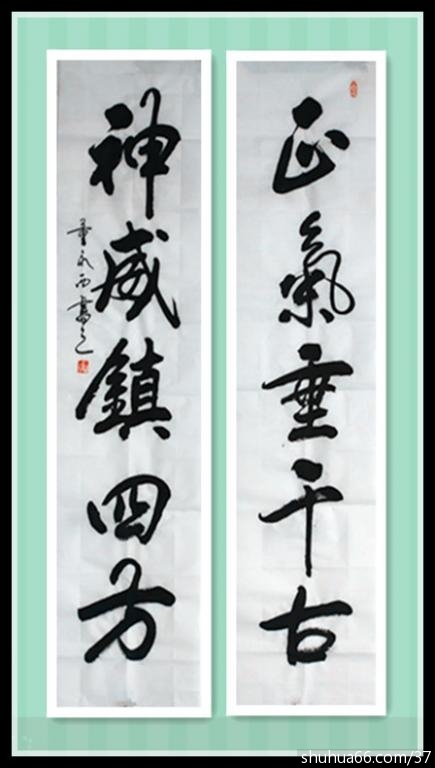 正氣垂千古
神威鎮四方
shuhua66.com/37